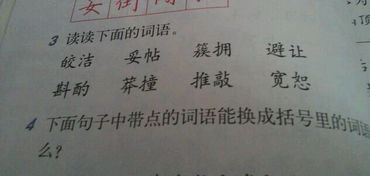 3 读读下面的词语。
皎洁 妥帖 簇拥 避让
斟酌 莽撞 推敲 宽恕
4 下面句子中带点的词语能换成括号里的词语
么？